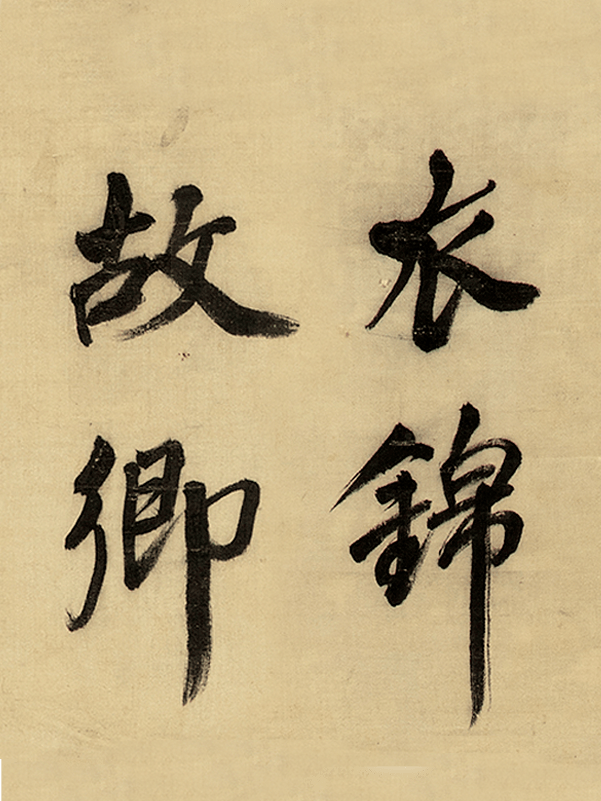 衣錦
故鄉